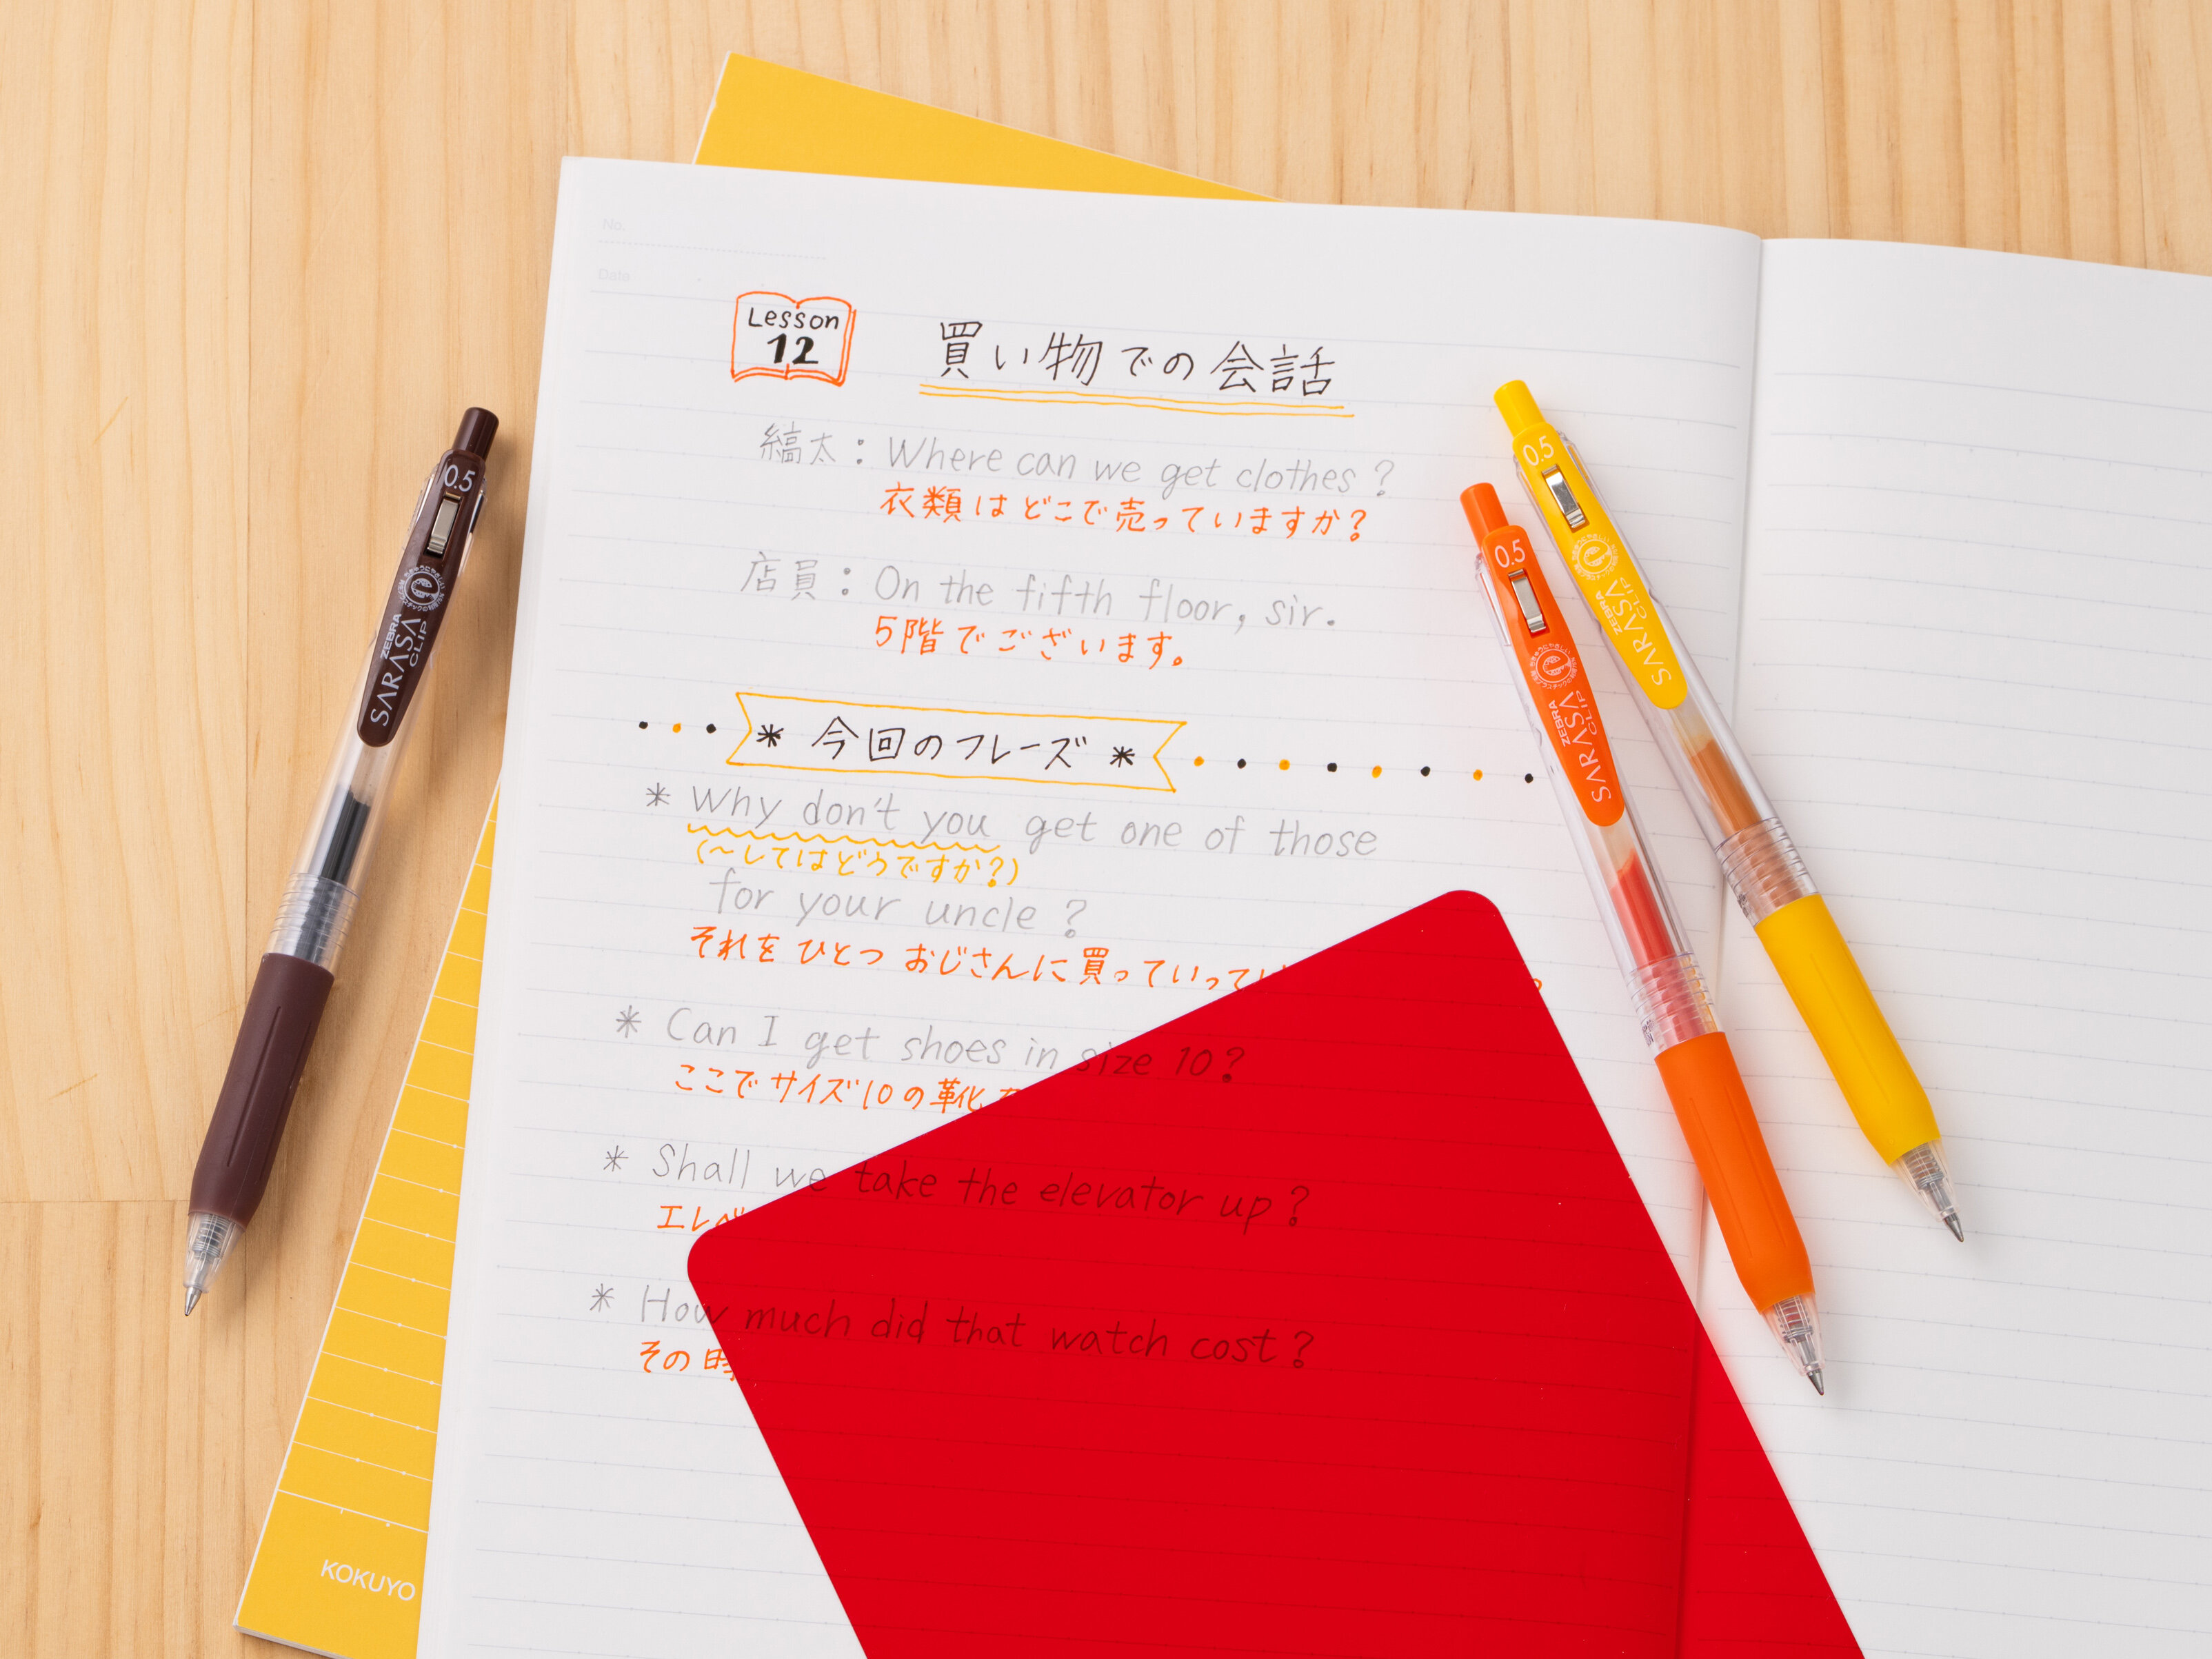 No.
Date
Lesson
12
買い物での会話
縞太：Where can we get clothes？
衣類はどこで売っていますか？
店員：On the fifth floor, sir.
5階でございます。
* 今回のフレーズ *
* Why don't you get one of those
(～してはどうですか？)
for your uncle？
それをひとつおじさんに買っていって
* Can I get shoes in size 10？
ここでサイズ10の靴
* Shall we take the elevator up？
エレベ
* How much did that watch cost？
その時
KOKUYO
0.5
ZEBRA
SARASA
CLIP
0.5
ZEBRA
SARASA
CLIP
0.5
ZEBRA
SARASA
CLIP